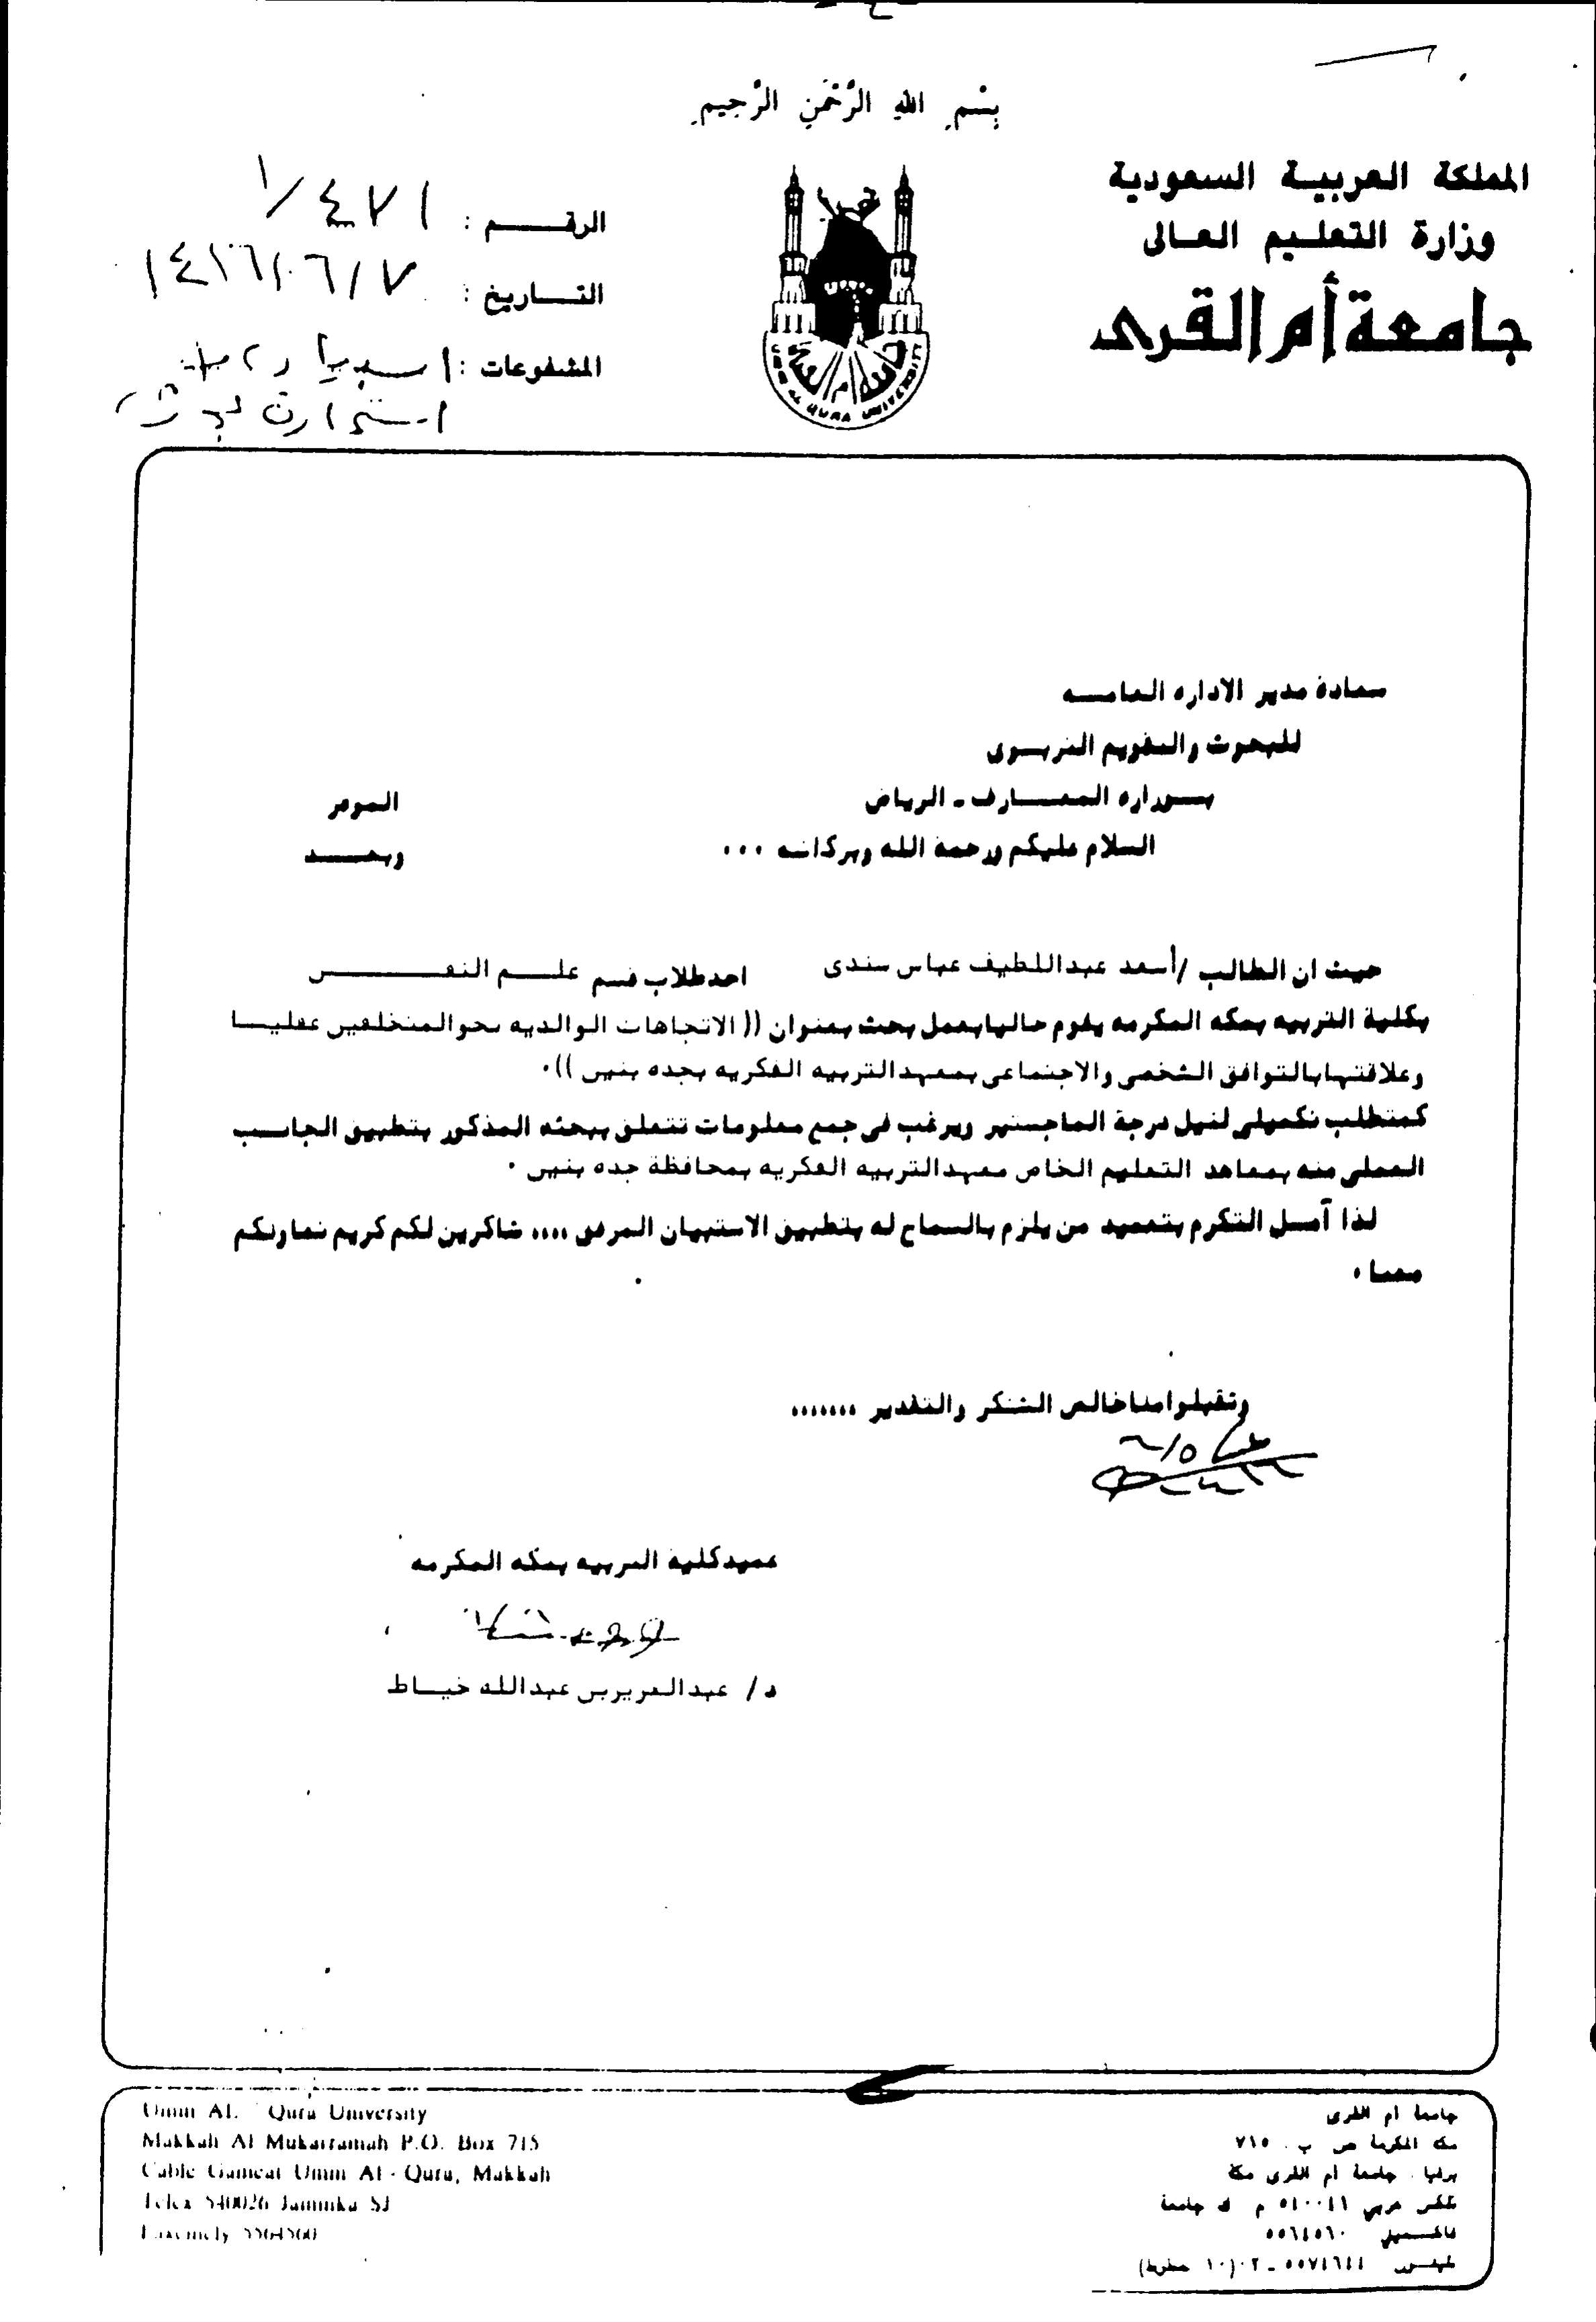 بِسْمِ اللهِ الرَّحْمَنِ الرَّحِيمِ
المملكة العربيـة السعودية
وزارة التعلـيم العـالى
جامعة أم القرى
الرقـــــم : ١/٤٧١
التـــاريخ : ١٤١٦/٠٦/٧
المشفوعات :
UMM AL QURA UNIVERSITY
سعادة مدير الاداره العامــه
للبحوث والتقويم التربــوى
بــوزاره المعــارف ـ الرياض
الموقر
السلام عليكم ورحمة الله وبركاته ...
وبعــــد
حيث ان الطالب /أسعد عبداللطيف عباس سندى احدطلاب قسم علــم النفـــــــس
بكلية التربيه بمكه المكرمه يقوم حاليابعمل بحث بعنوان (( الاتجاهات الوالديه نحوالمتخلفين عقليــا
وعلاقتهابالتوافق الشخصى والاجتماعى بمعهدالتربيه الفكريه بجده بنين )).
كمتطلب تكميلى لنيل درجة الماجستير ويرغب فى جمع معلومات تتعلق ببحثه المذكور بتطبيق الجانــب
العملى منه بمعاهد التعليم الخاص معهدالتربيه الفكريه بمحافظة جده بنين .
لذا آمــل التكرم بتعميد من يلزم بالسماح له بتطبيق الاستبيان المرفق .... شاكرين لكم كريم تعاونكم
معنا .
وتقبلوامناخالص الشكر والتقدير .......
عميدكلية التربيه بمكه المكرمه
د/ عبدالعزيزبن عبدالله خيــاط
Umm AL Qura University
Makkah Al Mukarramah P.O. Box 715
Cable Gameat Umm Al - Qura, Makkah
Telex 540026 Jammka SJ
Faxemely 5564560
جامعة أم القرى
مكة المكرمة ص ب . ٧١٥
برقيا . جامعة ام القرى مكة
تلكس عربي ٥٤٠٠٤١ م ك جامعة
فاكسميلي ٥٥٦٤٥٦٠
تليفون ٥٥٧٤٦٤٤ ـ ٠٢ (١٠ خطوط)